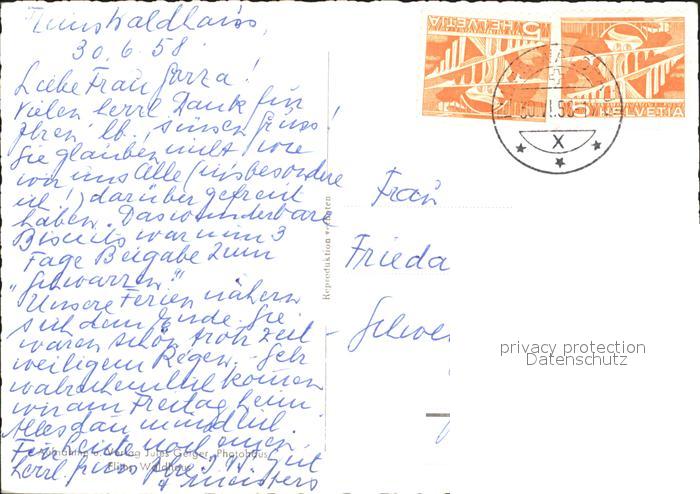 30.6.58.
Liebe Frau
Vielen herzl. Dank für
Ihren lb., süssen Gruss!
Sie glauben nicht, wie
wir uns Alle (insbesondere
ich!) darüber gefreut
haben. Das wunderbare
Biscuits war nun 3
Tage Beigabe zum
"Schwarzen"
Unsere Ferien nähern
sich dem Ende. Sie
waren schön trotz zeit-
weiligem Regen. Sehr
wahrscheinlich kommen
wir am Freitag heim.
Alles dann mündlich.
Für heute noch einen
herzl. Gruss Ihre
Verlag Jules Geiger, Photohaus
Flims Waldhaus
Reproduktion verboten
HELVETIA
5
HELVETIA
5
30.VI.58
X
Frau
Frieda
privacy protection
Datenschutz